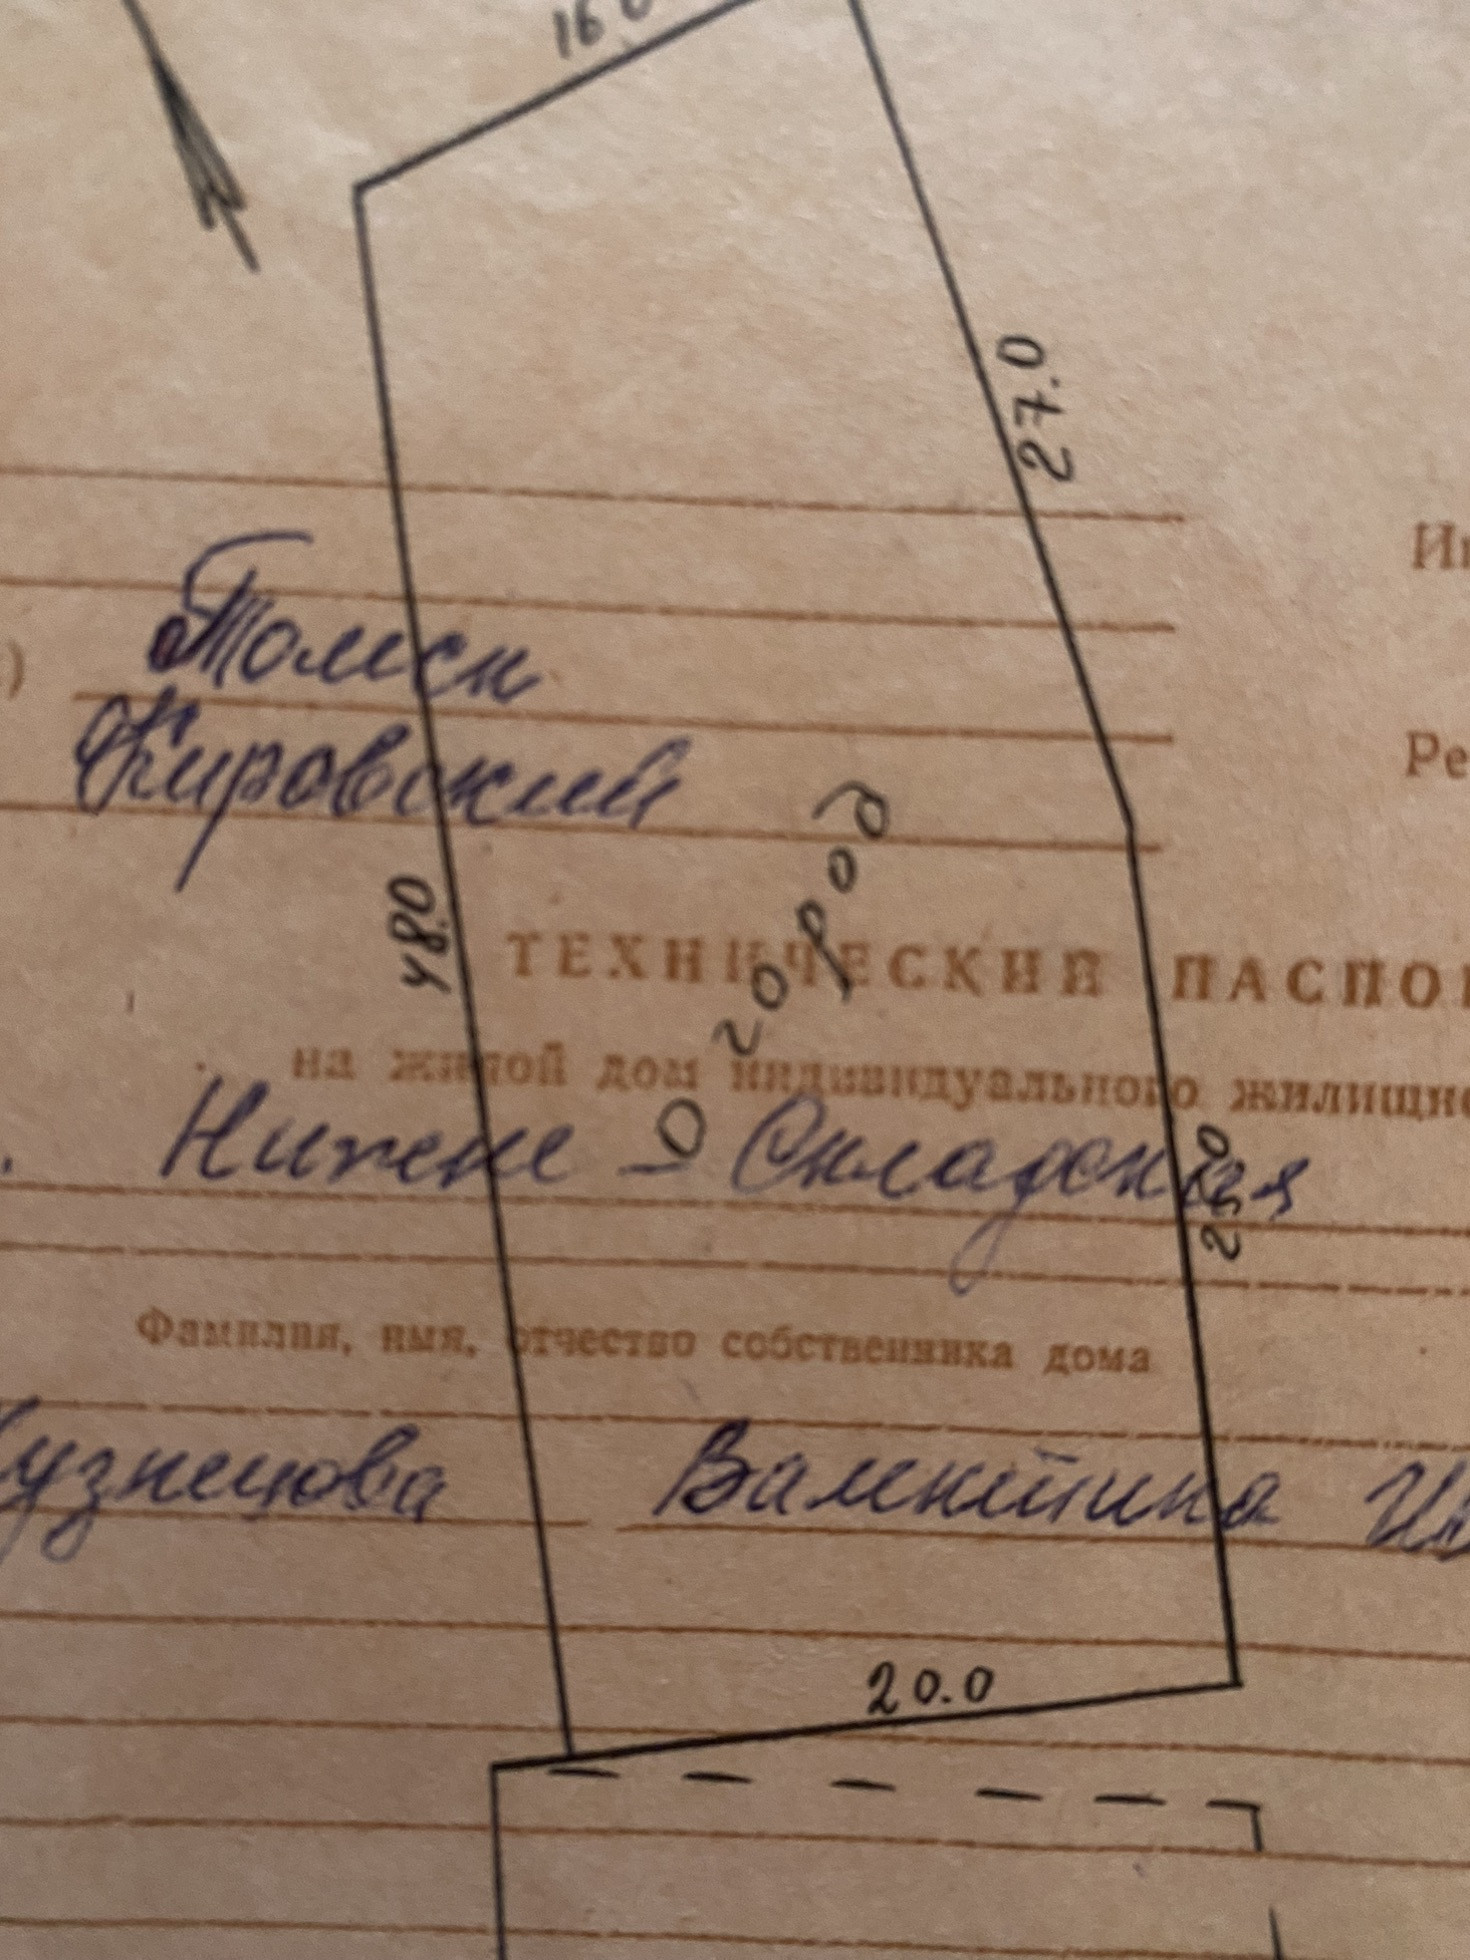 16.0
27.0
Ин
)
Томск
Ре
Кировский
48.0
Огород
ТЕХНИЧЕСКИЙ ПАСПОР
на жилой дом индивидуального жилищно
Нижне - Складская
25.0
Фамилия, имя, отчество собственника дома
Кузнецова Валентина Ив
20.0